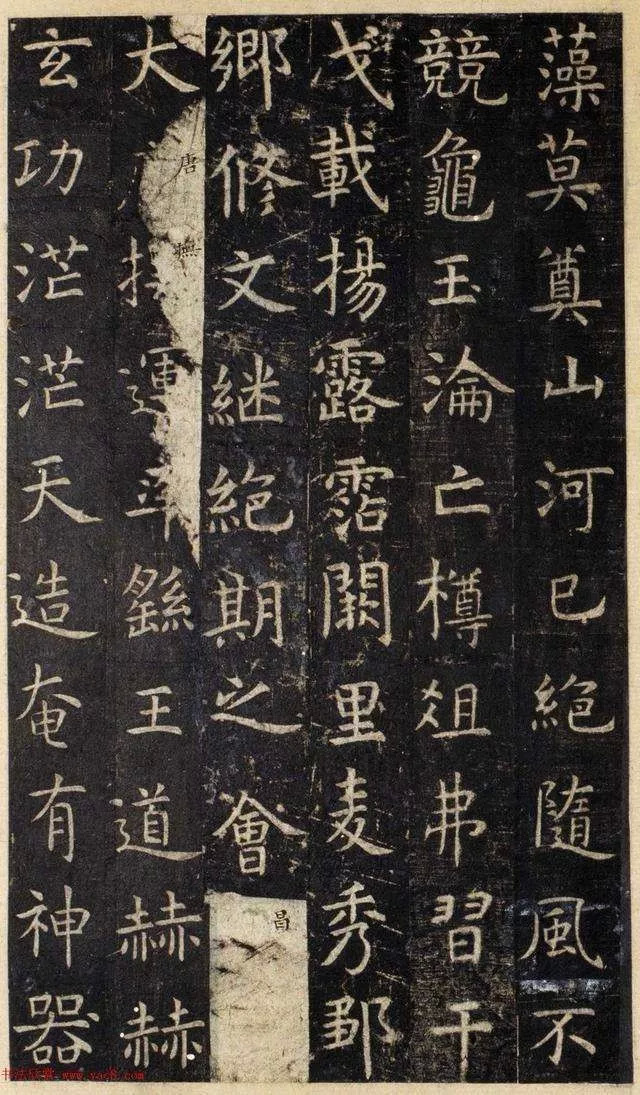 藻莫奠山河已絕隨風不
競龜玉淪亡樽俎弗習干
戈載揚露霑闕里麦秀鄒
鄉修文継絕期之會
昌
大唐撫運率繇王道赫赫
唐 撫
玄功茫茫天造奄有神器
书法欣赏 www.yac8.com